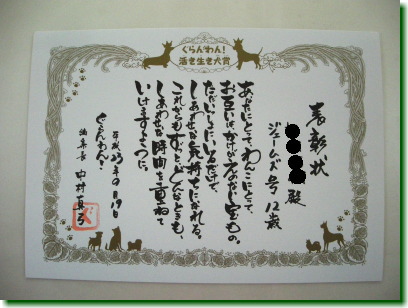 ぐらんわん！
活き生き犬賞
表彰状
殿
ジェームズ号 12歳
あなたにとって、わんこにとって、
お互いが、かけがえのない宝もの。
ただいっしょにいるだけで、
しあわせな気持ちになれる。
これからもずっと、どんなときも、
しあわせな時間を重ねて
いけますように。
平成23年9月19日
ぐらんわん！
編集長 中村真弓